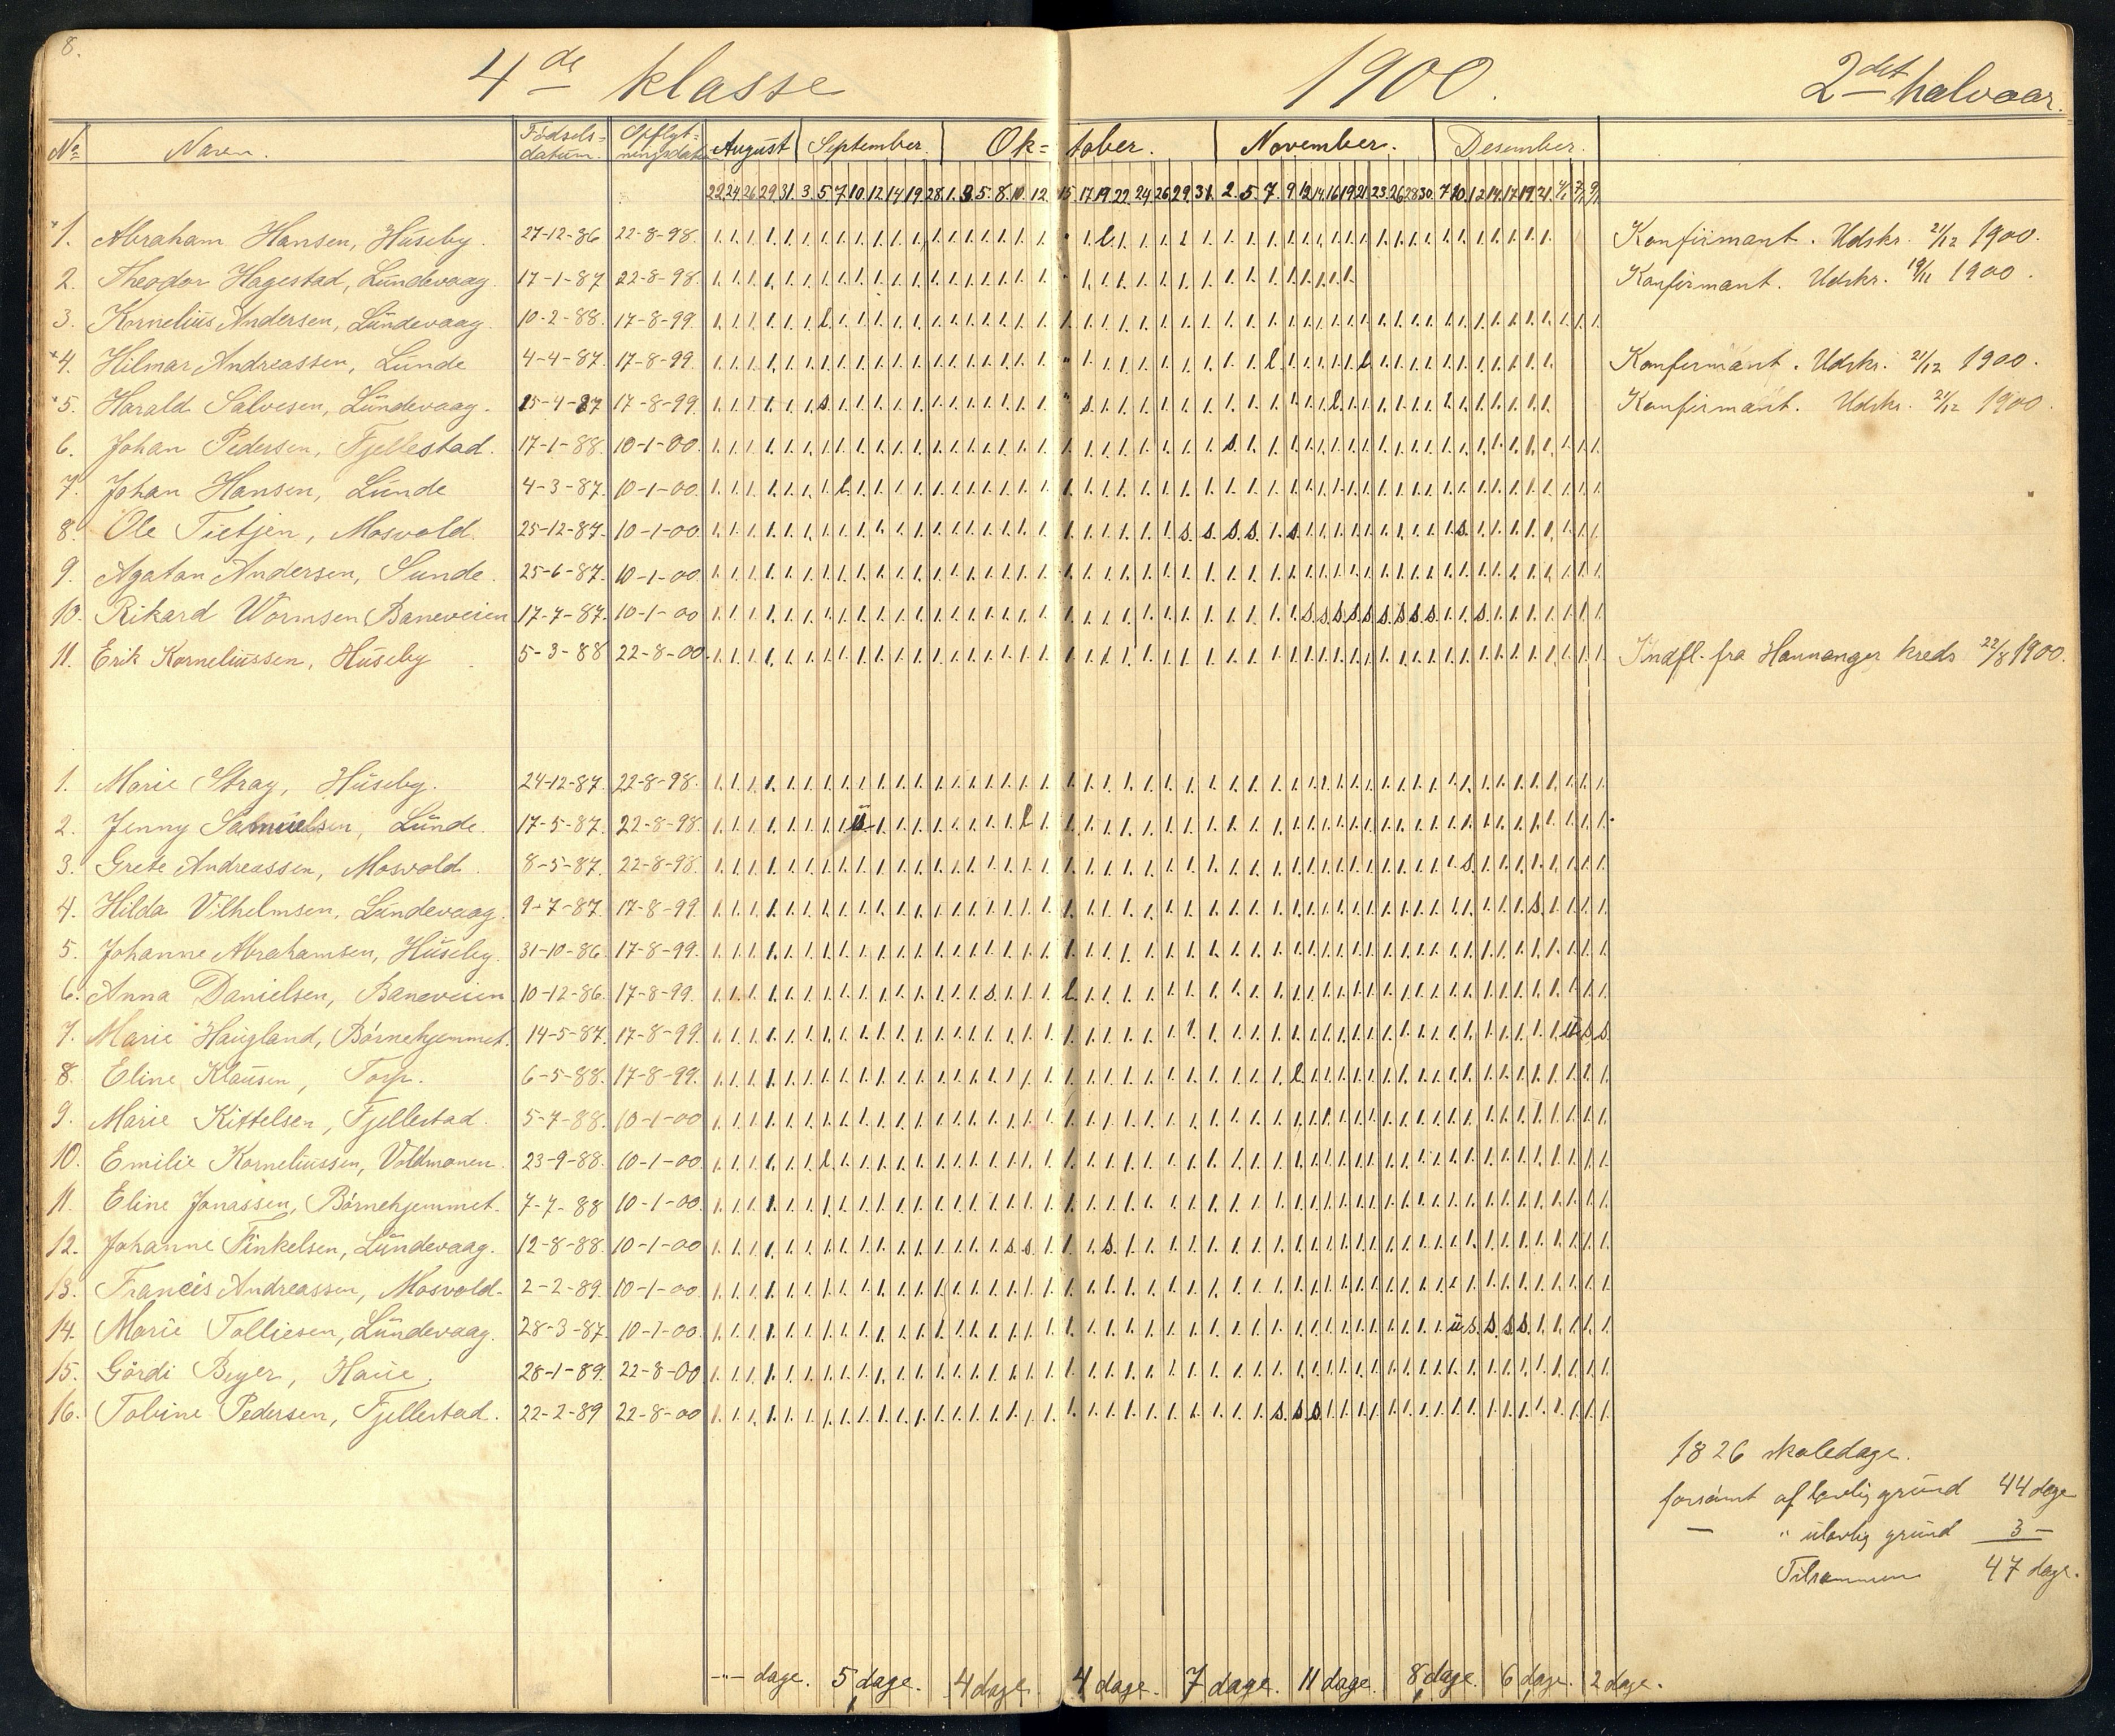 8.
4de klasse 1900. 2det halvaar.
No Navn. Födsels-datum. Opflyt-ningsdato August September. Ok-tober. November. Desember.
22 24 26 29 31. 3. 5 7 10. 12. 14 19 28. 1. 3. 5. 8. 10. 12. 15. 17 19. 22. 24 26 29. 31. 2. 5. 7. 9. 12. 14. 16 19 21. 23. 26. 28 30. 7. 10. 12. 14. 17. 19. 21.
1. Abraham Hansen, Huseby. 27-12-86 22-8-98. Konfirmant. Udskr. 21/12 1900.
2. Theodor Hagestad, Lundevaag. 17-1-87 22-8-98. Konfirmant. Udskr. 19/11 1900.
3. Kornelius Andersen, Lundevaag. 10-2-88. 17-8-99.
4. Hilmar Andreassen, Lunde 4-4-87. 17-8-99. Konfirmant. Udskr. 21/12 1900.
5. Harald Salvesen, Lundevaag. 15-4-87 17-8-99. Konfirmant. Udskr. 21/12 1900.
6. Johan Pedersen, Fjellestad. 17-1-88. 10-1-00.
7. Johan Hansen, Lunde 4-3-87. 10-1-00.
8. Ole Tietjen, Mosvold. 25-12-87. 10-1-00.
9. Agaton Andersen, Sunde. 25-6-87. 10-1-00
10. Rikard Wormsen, Baneveien 17-7-87. 10-1-00
11. Erik Korneliussen, Huseby 5-3-88 22-8-00. Indfl. fra Hannanger kreds 22/8 1900.
1. Marie Stray, Huseby. 24-12-87. 22-8-98.
2. Jenny Samuelsen, Lunde. 17-5-87. 22-8-98.
3. Grete Andreassen, Mosvold. 8-5-87. 22-8-98.
4. Hilda Vilhelmsen, Lundevaag. 9-7-87. 17-8-99.
5. Johanne Abrahamsen, Huseby. 31-10-86. 17-8-99.
6. Anna Danielsen, Baneveien 10-12-86. 17-8-99.
7. Marie Haugland, Börnehjemmet. 14-5-87. 17-8-99.
8. Eline Klausen, Torp. 6-5-88. 17-8-99.
9. Marie Kittelsen, Fjellestad. 5-7-88. 10-1-00
10. Emilie Korneliussen, Voldmonen. 23-9-88. 10-1-00.
11. Eline Jonassen, Börnehjemmet. 7-7-88 10-1-00.
12. Johanne Finkelsen, Lundevaag. 12-8-88. 10-1-00
13. Francis Andreassen, Mosvold. 2-2-89. 10-1-00.
14. Marie Tolliesen, Lundevaag. 28-3-87. 10-1-00.
15. Gördi Beyer, Haue. 28-1-89. 22-8-00
16. Tobine Pedersen, Fjellestad. 22-2-89 22-8-00
1826 skoledage.
forsömt af lovlig grund 44 dage
— " ulovlig grund 3 —
Tilsammen 47 dage.
-"- dage. 5 dage. 4 dage. 4 dage. 7 dage. 11 dage. 8 dage. 6 dage. 2 dage.